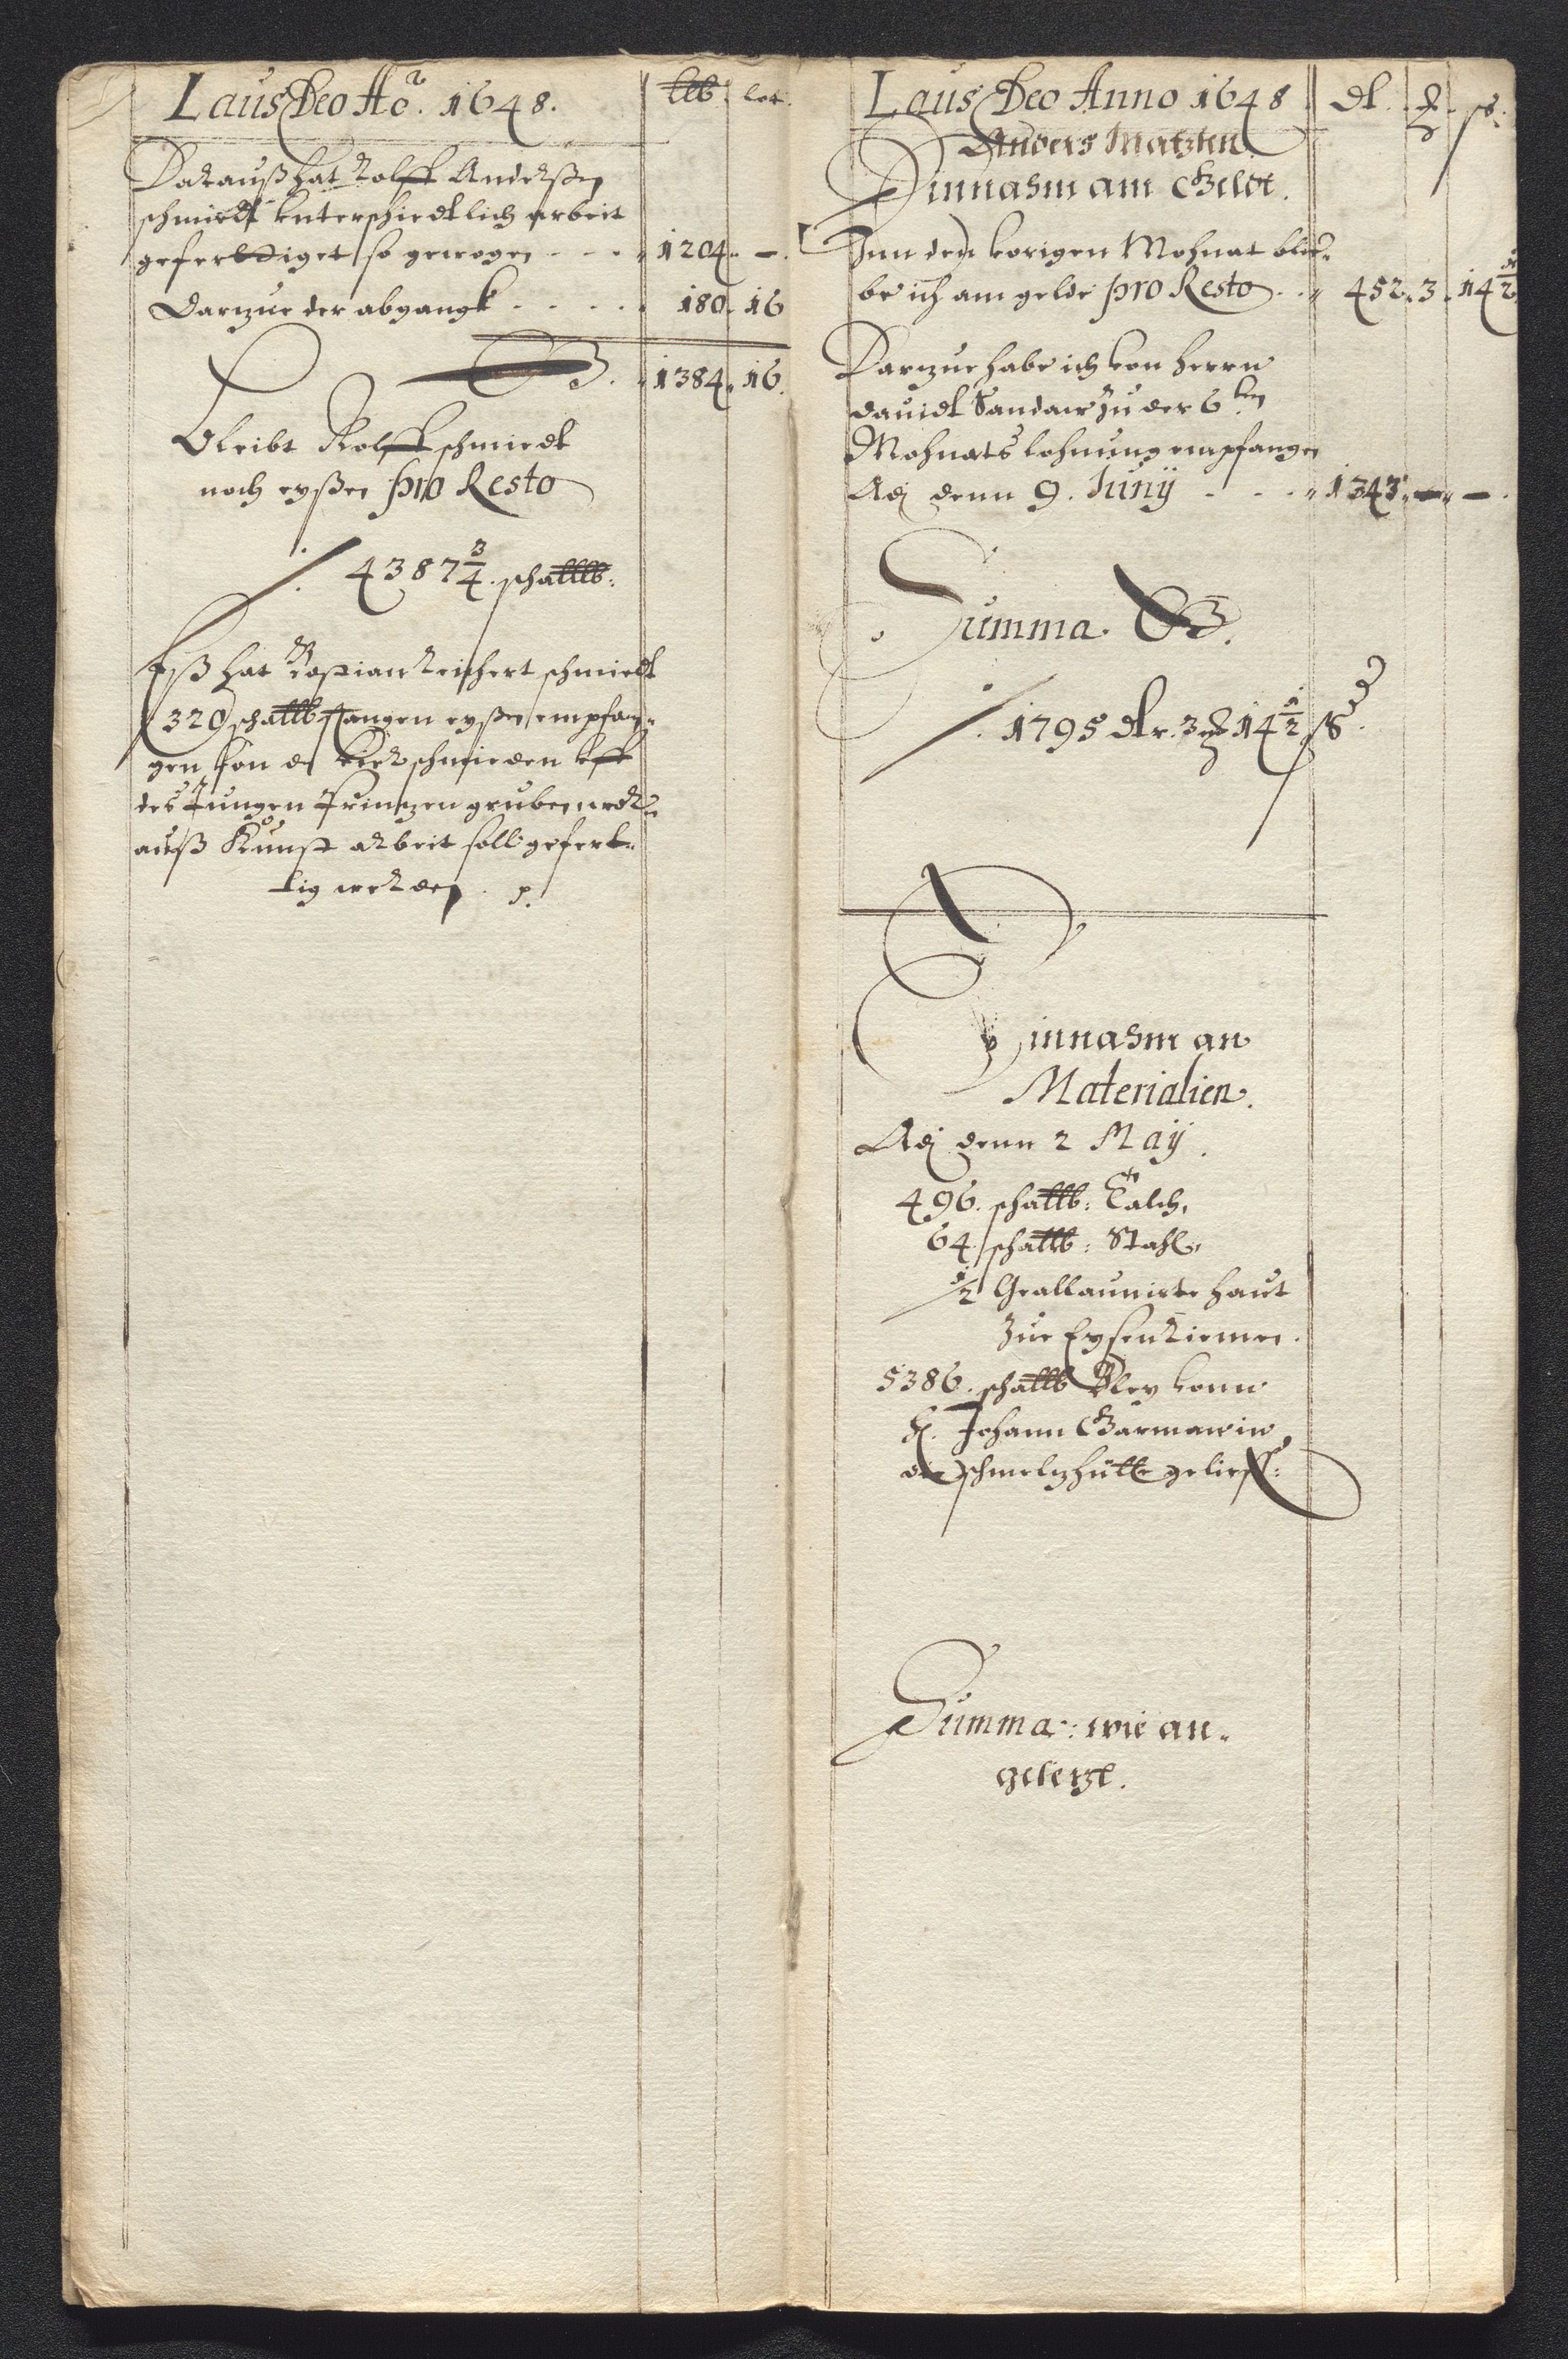 Laus Deo Ao. 1648.
lb. lot.
Darauß hat Rolff Anderßen
schmiedt unterschiedtlich arbeit
geferttiget so gewogen - - - 1204. -.
Darzue der abgangk - - - - - 180. 16
S. 1384. 16.
Bleibt Rolff schmiedt
noch eyßen pro Resto
/. 4387 3/4. schallb:
Eß hat Bastian Reichert schmiedt
320 schallb Stangen eyßen empfan-
gen von
des Jungen Printzen gruben
auß Kunst arbeit soll gefert-
tig werden. p.
Laus Deo Anno 1648
dl. ß.
Anders Matzen
Einnahm am Geldt.
Inn dem vorigen Mohnat blie-
be ich am gelde pro Resto - - 452. 3. 14 1/2
Darzue habe ich von Herrn
Dauidt Sandaw zu der 6ten
Mohnats lohnung empfangen
Adj denn 9. Juny - - - 1343. -. -.
Summa. S.
/. 1795 dlr. 3 14 1/2 ß.
Einnahm an
Materialien.
Adj denn 2 Maÿ.
496. schallb: Talch,
64. schallb: Stahl,
1/2 Geallaunirte haut
zue Eysenriemen.
5386. schallb Bley vonn
H. Johann Garman in
die schmeltzhütte gelieff:
Summa: wie an-
gesetzt.